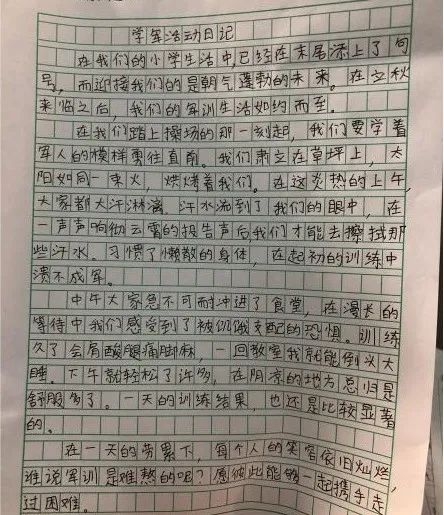 学军活动日记
在我们的小学生活中,已经在末尾添上了句
号，而迎接我们的是朝气蓬勃的未来。在立秋
来临之后，我们的军训生活如约而至。
在我们踏上操场的那一刻起，我们要学着
军人的模样勇往直前。我们肃立在草坪上，太
阳如同一束火，烘烤着我们。在这炎热的上午，
大家都大汗淋漓。汗水流到了我们的眼中，在
一声声响彻云霄的报告声后,我们才能去擦拭那
些汗水。习惯了懒散的身体，在起初的训练中
溃不成军。
中午大家急不可耐冲进了食堂，在漫长的
等待中我们感受到了被饥饿支配的恐惧。训练
久了会肩酸腿痛脚麻，一回教室我就能倒头大
睡。下午就轻松了许多，在阴凉的地方总归是
舒服多了。一天的训练结果，也还是比较显著
的。
在一天的劳累下，每个人的笑容依旧灿烂，
谁说军训是难熬的呢？愿彼此能够一起携手走
过困难。